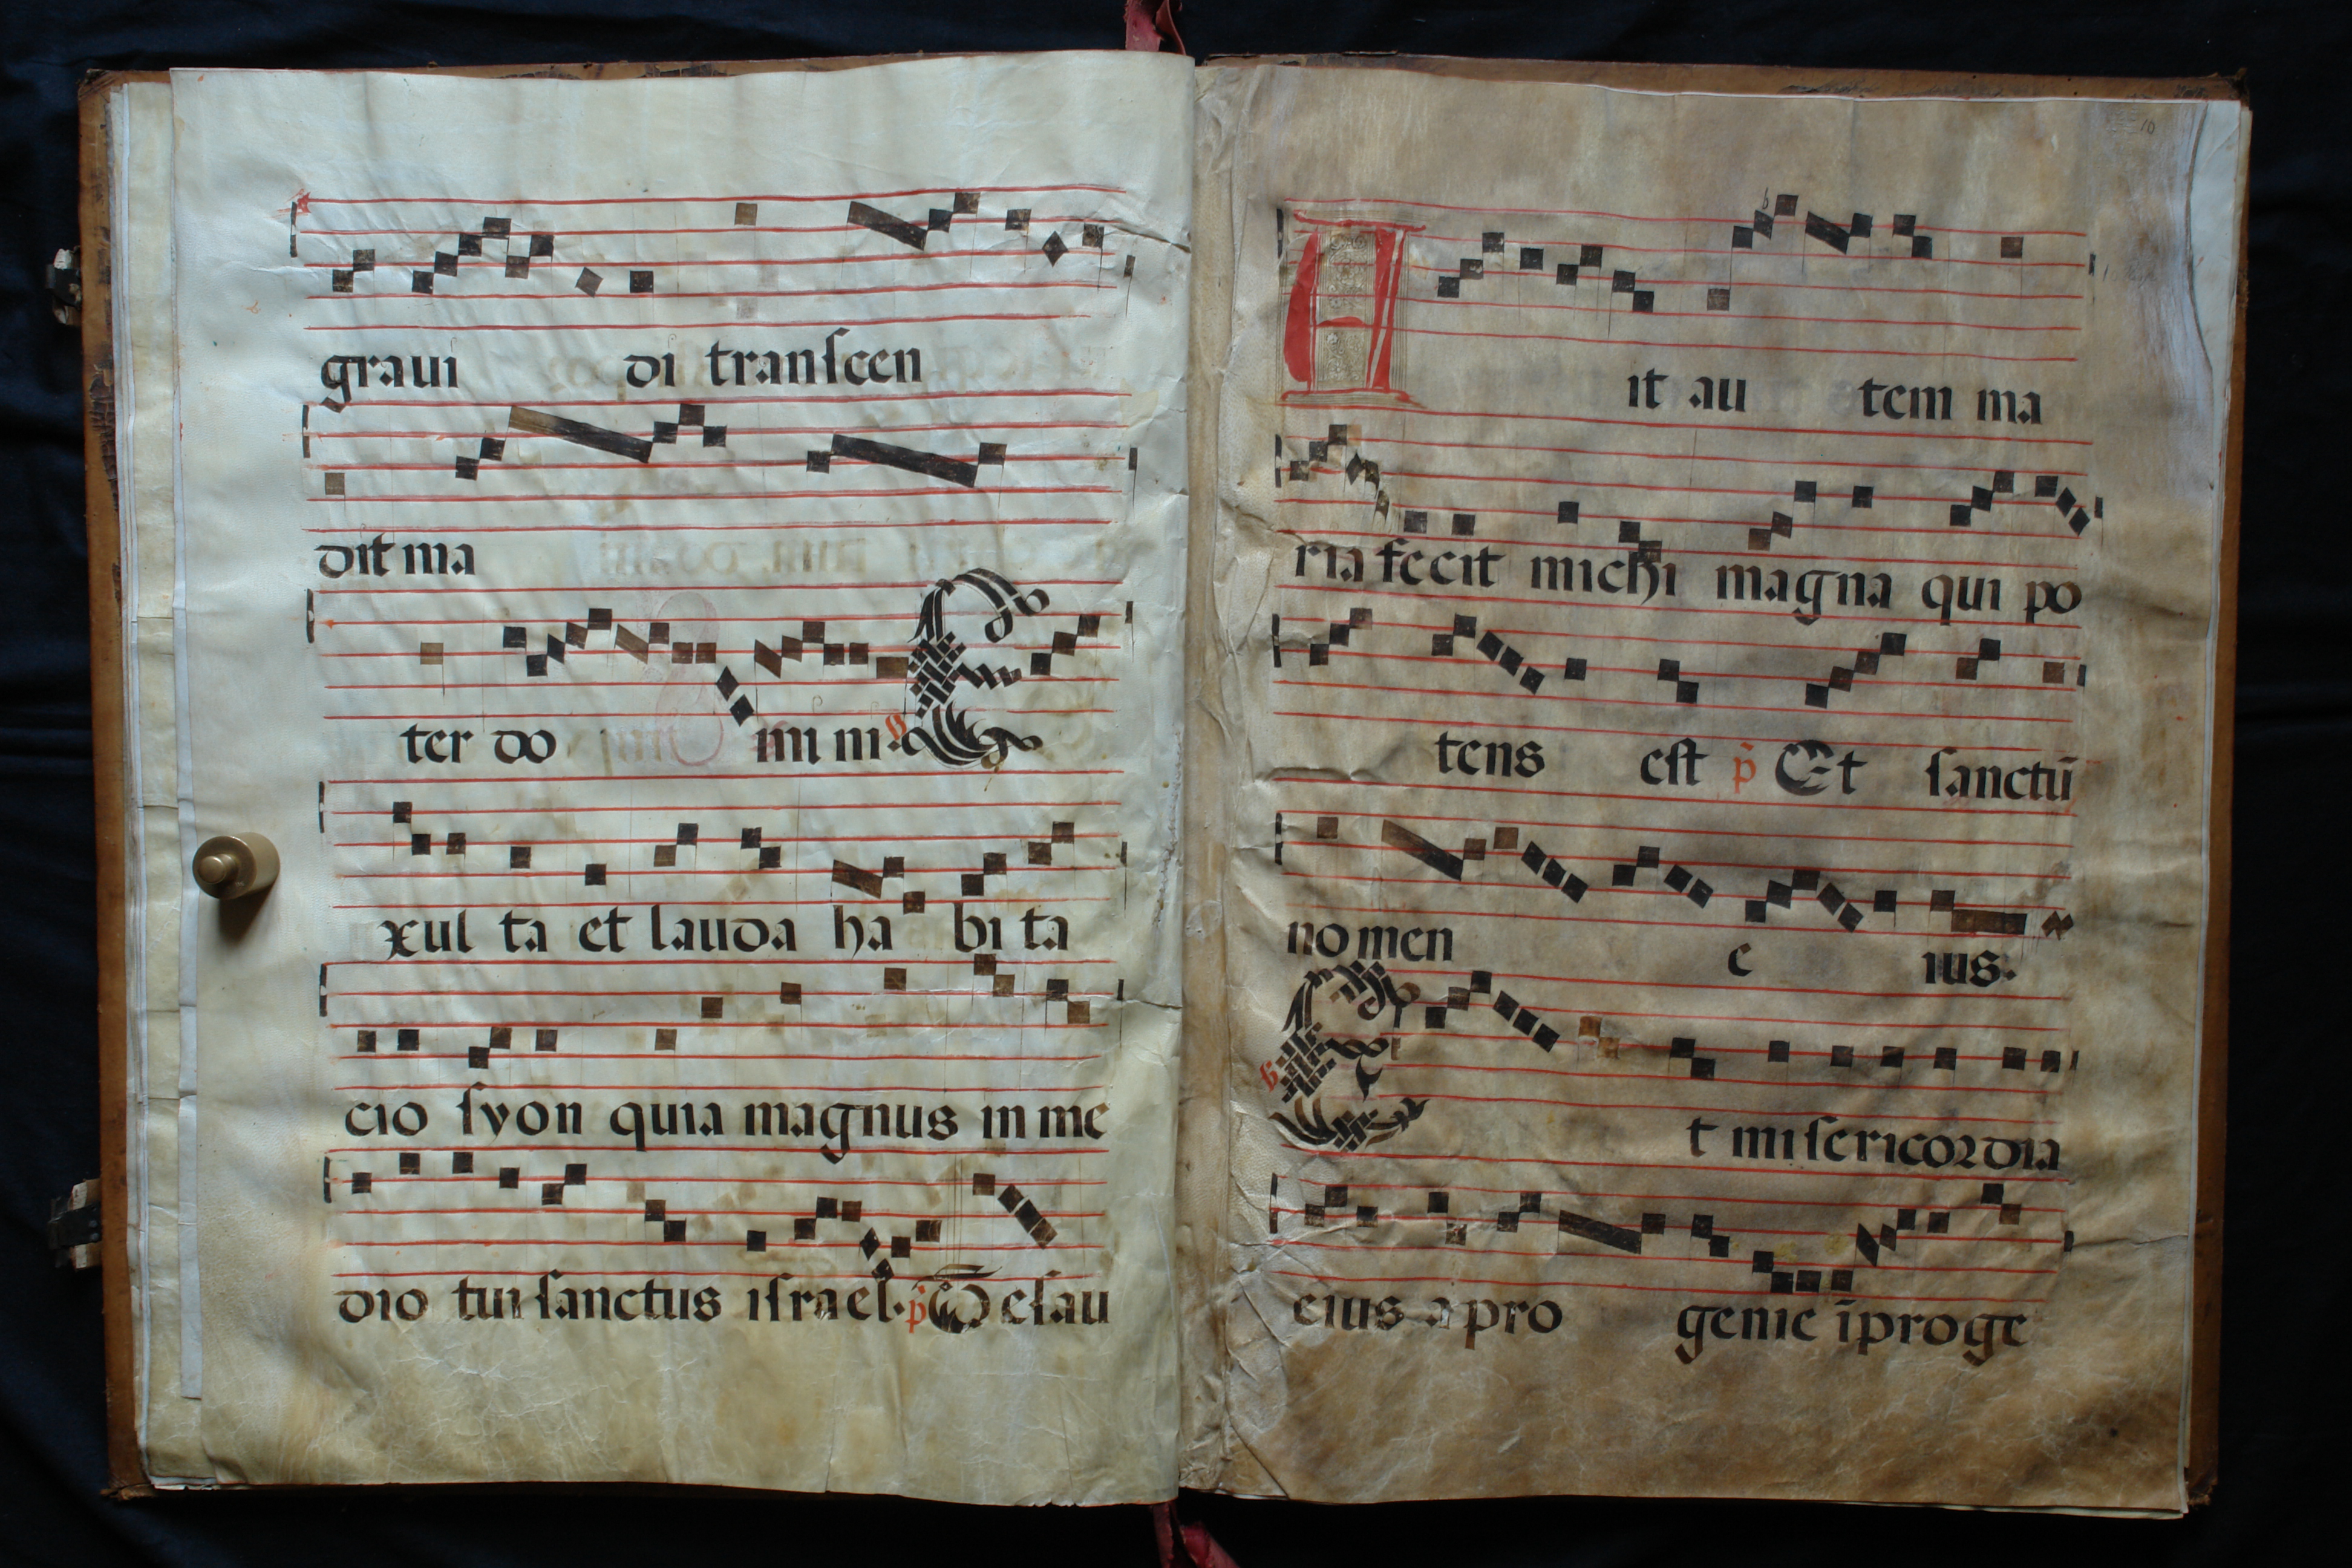 graui di transcen
dit ma
ter do mi ni. ℣ E
xul ta et lauda ha bi ta
cio syon quia magnus in me
dio tui sanctus israel. p̄ De sau
10
A it au tem ma
ria fecit michi magna qui po
tens est p̄ Et sanctū
nomen e ius.
℣ E t misericordia
eius a pro genie ī proge